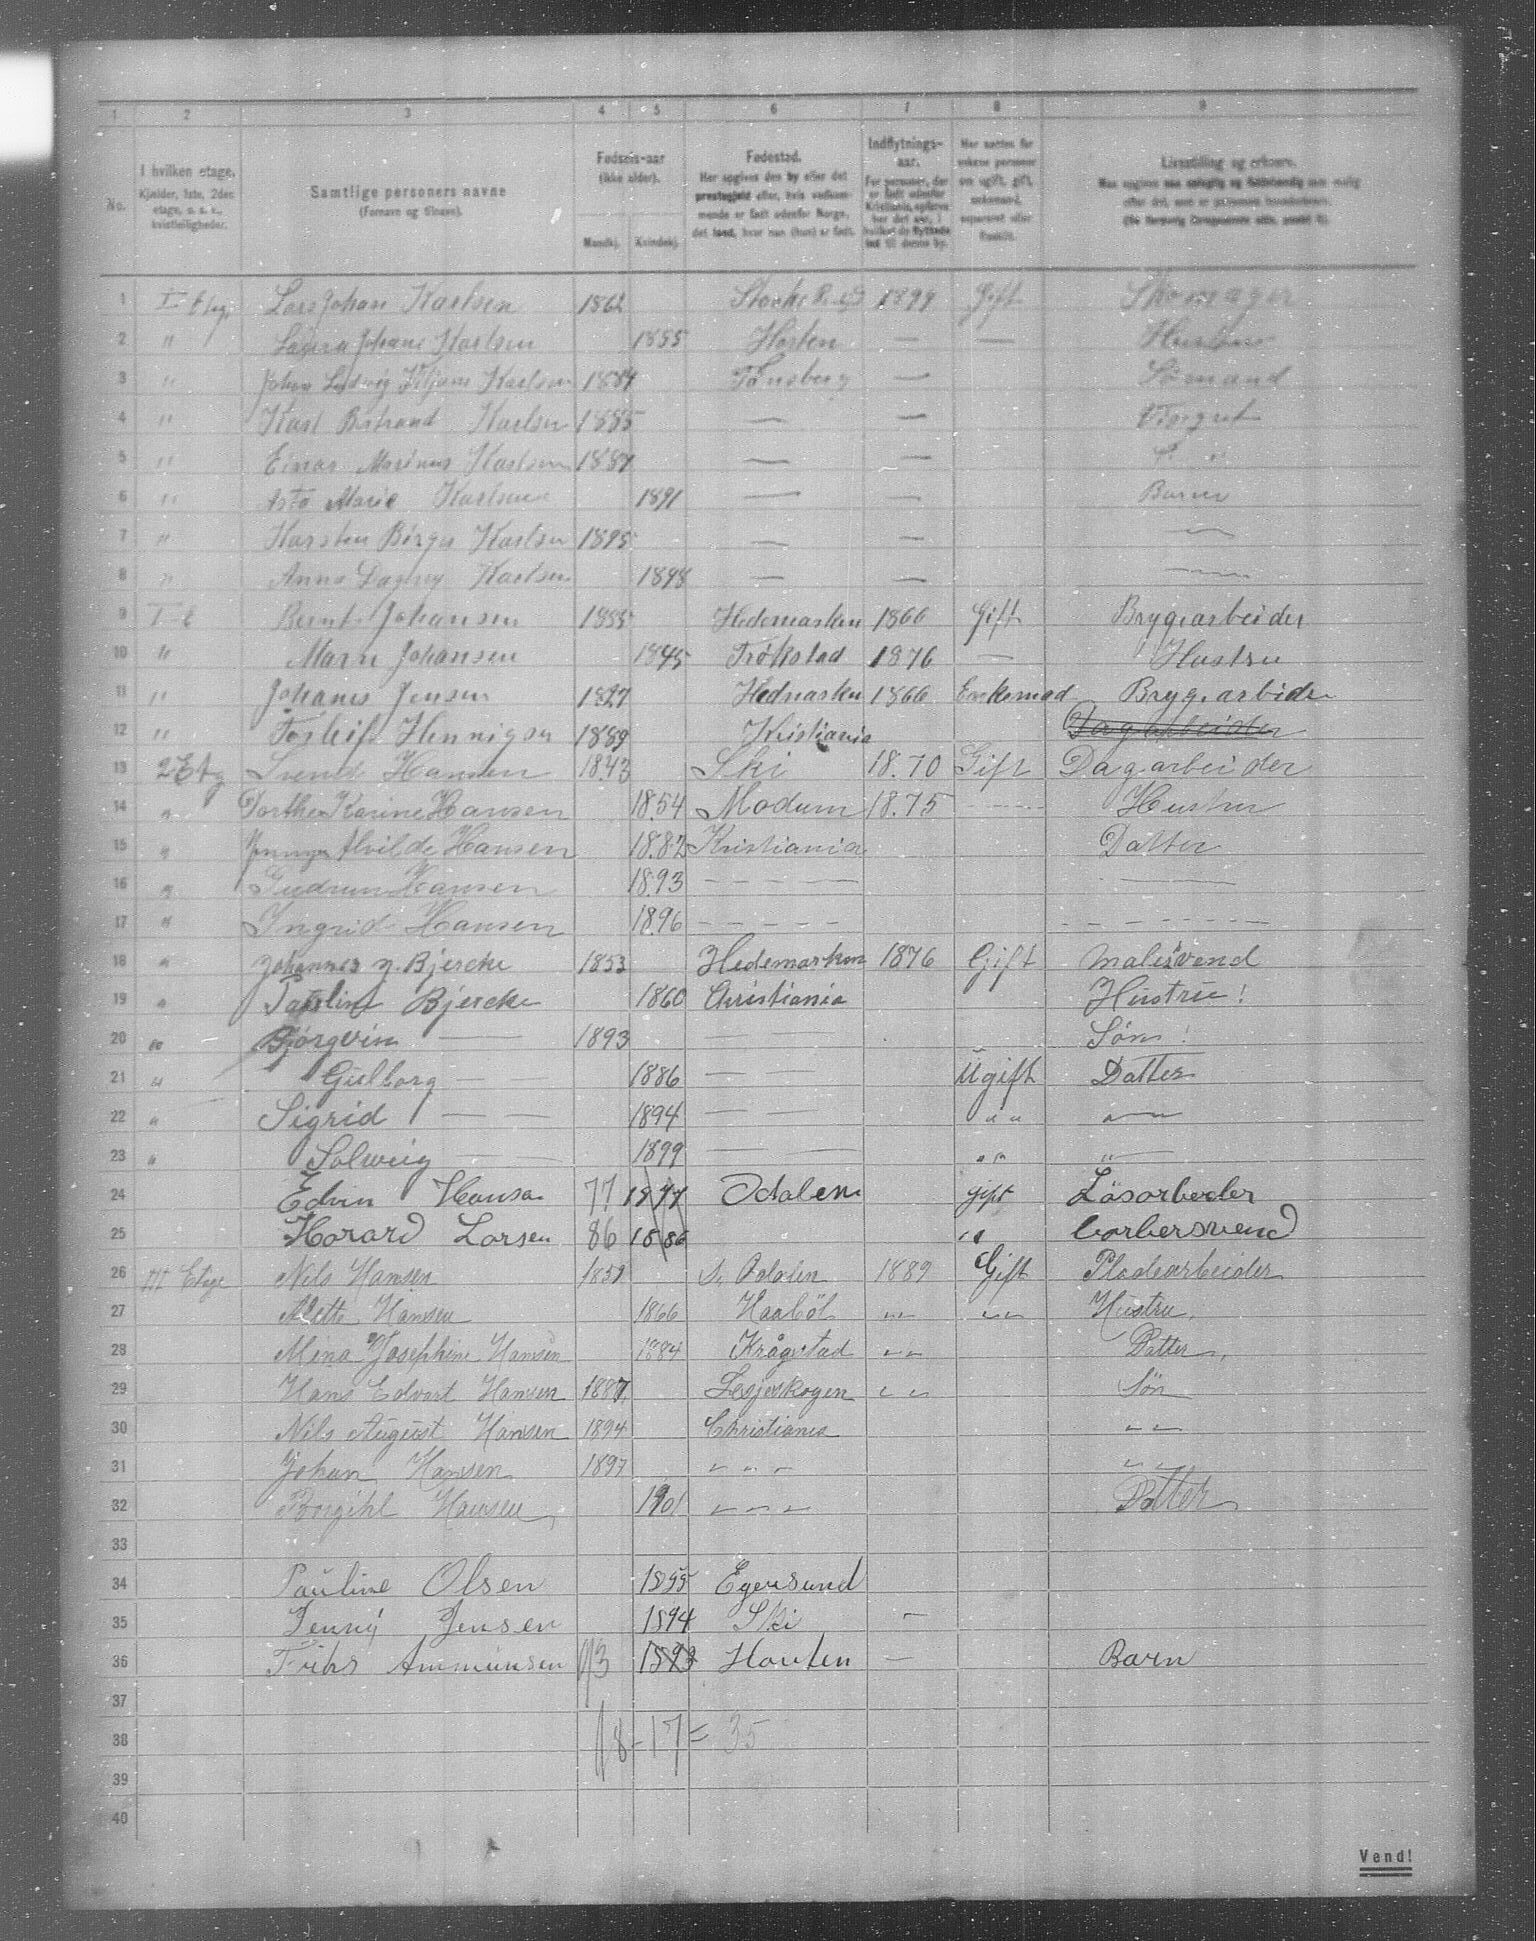 1 2 3 4 5 6 7 8 9
No. I hvilken etage. Kjælder, 1ste, 2den etage, o. s. v., kvistleiligheder. Samtlige personers navne (Fornavn og tilnavn). Fødsels-aar (ikke alder). Mandkj. Kvindekj. Fødested. Her opgives den by eller det prestegjeld eller, hvis vedkommende er født udenfor Norge, det land, hvor han (hun) er født. Indflytnings-aar. For personer, der er født udenfor Kristiania, opføres her det aar, i hvilket de flyttede ind til denne by. Livsstilling og erhverv.
1 I Etg. Lars Johan Karlsen 1862 1899 Gift Skomager
2 " Laura Johane Karlsen 1855 Horten — — Hustru
3 " Johan Ludvig Karlsen 1884 Tønsberg — Sømand
4 " Karl Karlsen 1885 — —
5 " Einar Marinus Karlsen 1887 — —
6 " Asta Marie Karlsen 1891 — — Barn
7 " Karsten Birger Karlsen 1895 — — —
8 " Anna Dagny Karlsen 1898 — — —
9 Bernt Johansen 1855 Hedemarken 1866 Gift Brygearbeider
10 " Maren Johansen 1845 Trøkstad 1876 — Hustru
11 " Johanes Jensen 1827 Hedmarken 1866 Enkemad Brygarbider
12 " Torleif Hennigsen 1889 Kristiania Dagarbeider
13 2 Etg Svend Hansen 1843 Ski 18.70 Gift Dagarbeider
14 " Dorthea Karine Hansen 18.54 Modum 18.75 ---- Hustru
15 " Alvilde Hansen 18.82 Kristiania Datter
16 " Gudrun Hansen 18.93 — — — — ——
17 " Ingrid Hansen 18.96 — — — — — — —
18 " Johannes N. Bjercke 1853 Hedemarken 1876 Gift Malersvend
19 " Pauline Bjercke 1860 Christiania Hustru!
20 " Bjørgvin — 1893 — — Søn!
21 " Gudborg — — 1886 — — Ugift Datter
22 " Sigrid — — 1894 — — " " —
23 " Solveig — — 1899 — — " " "
24 Edvin Hansen 77 1877 Odalen gift Løsarbeider
25 Harard Larsen 86 1886 " barbersvend
26 III Etage Nils Hansen 1859 S. Odalen 1889 Gift Pladearbeider
27 Mette Hansen 1866 Haabøl " " " " Hustru.
28 Mina Josephine Hansen 1884 Krågstad " " Datter,
29 Hans Edvart Hansen 1887, Lesjeskogen " " Søn
30 Nils August Hansen 1894 Christiania " "
31 Johan Hansen 1897 " " " " "
32 Borgihl Hansen 1901 " " " Datter
33
34 Pauline Olsen 1855 Egersund
35 Jenny Jensen 1894 Ski —
36 Amundsen 93 1893 — Barn
37
38 18-17=35
39
40
Vend!